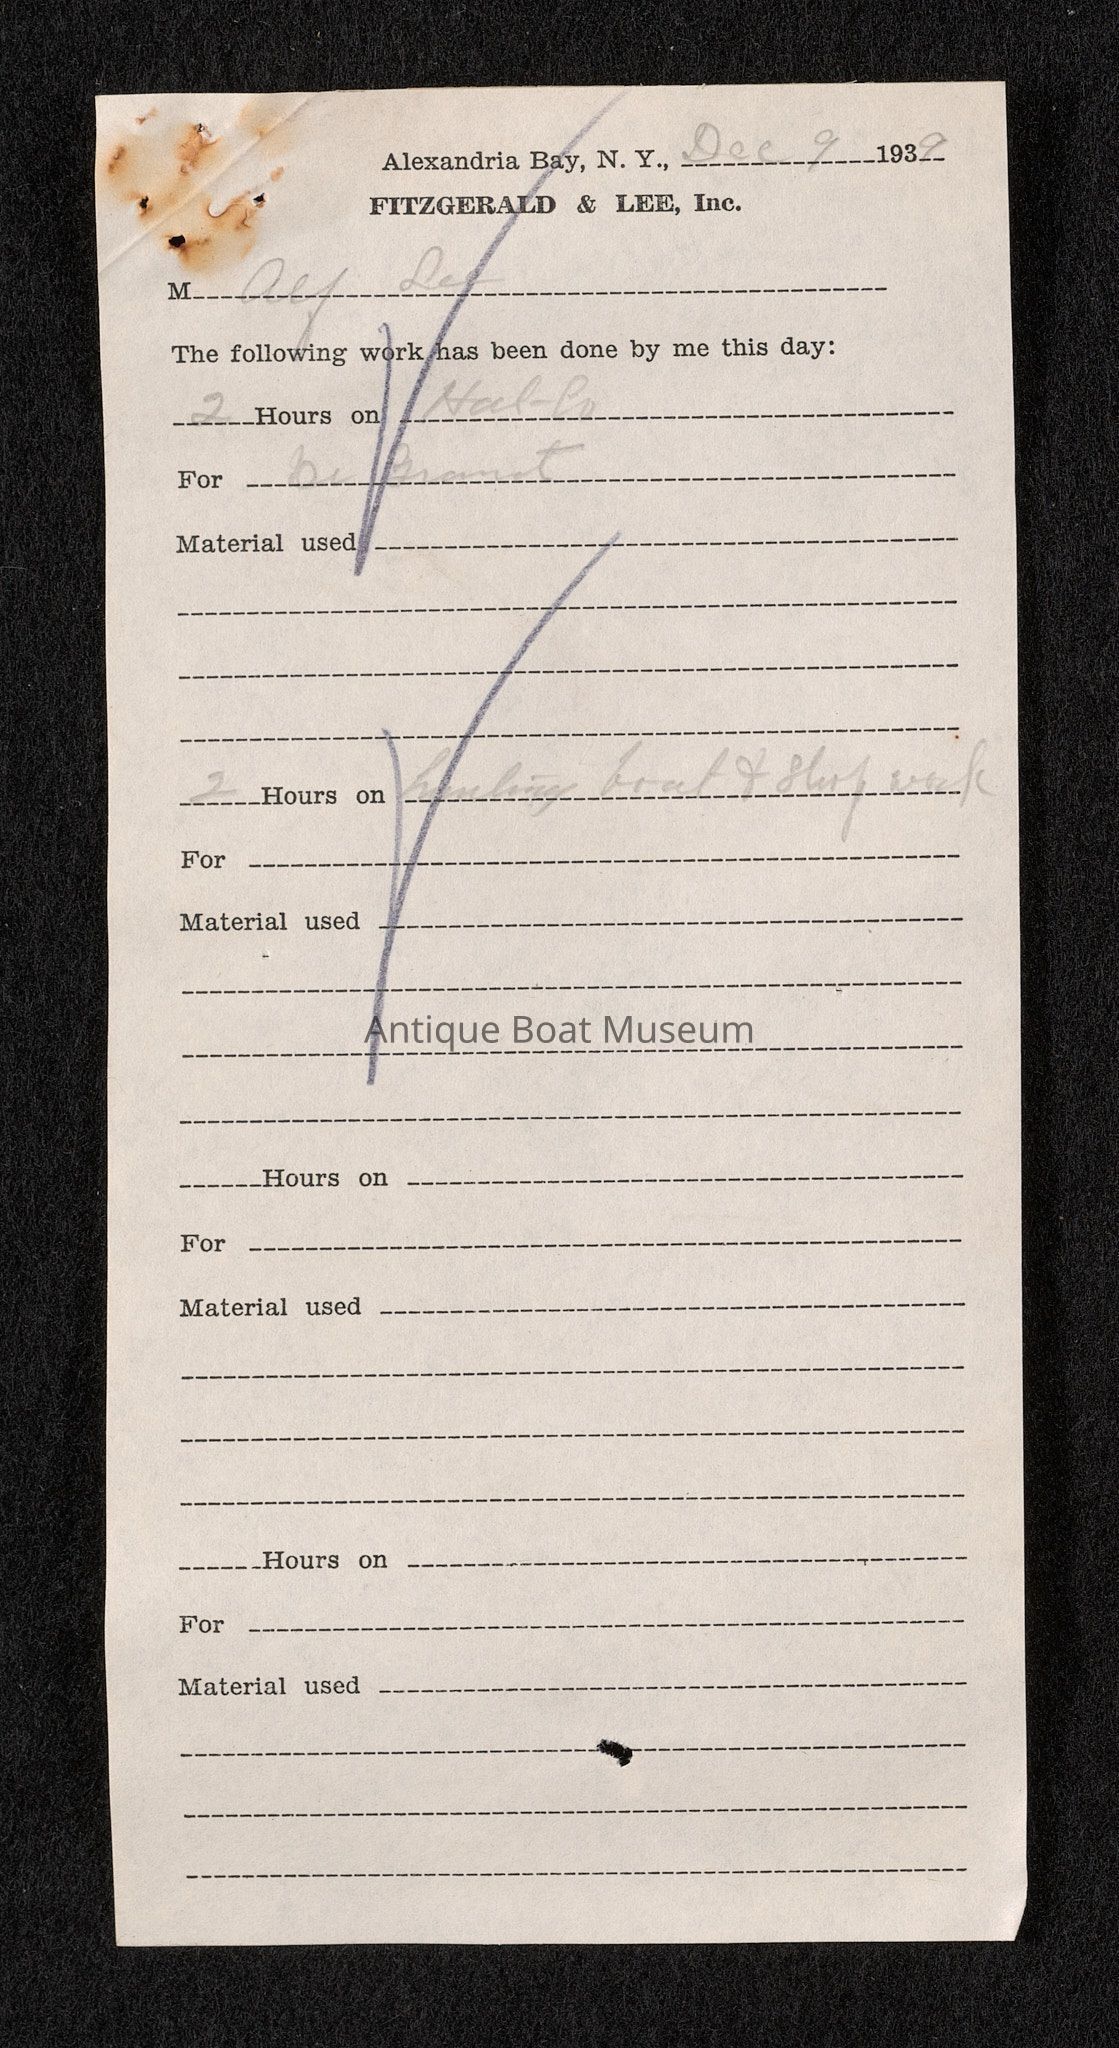 Alexandria Bay, N. Y., Dec 9 1939
FITZGERALD & LEE, Inc.
M Alf Lee
The following work has been done by me this day:
2 Hours on Hal-Co
For Grant
Material used
2 Hours on hauling boat & Shop work
For
Material used
Antique Boat Museum
Hours on
For
Material used
Hours on
For
Material used